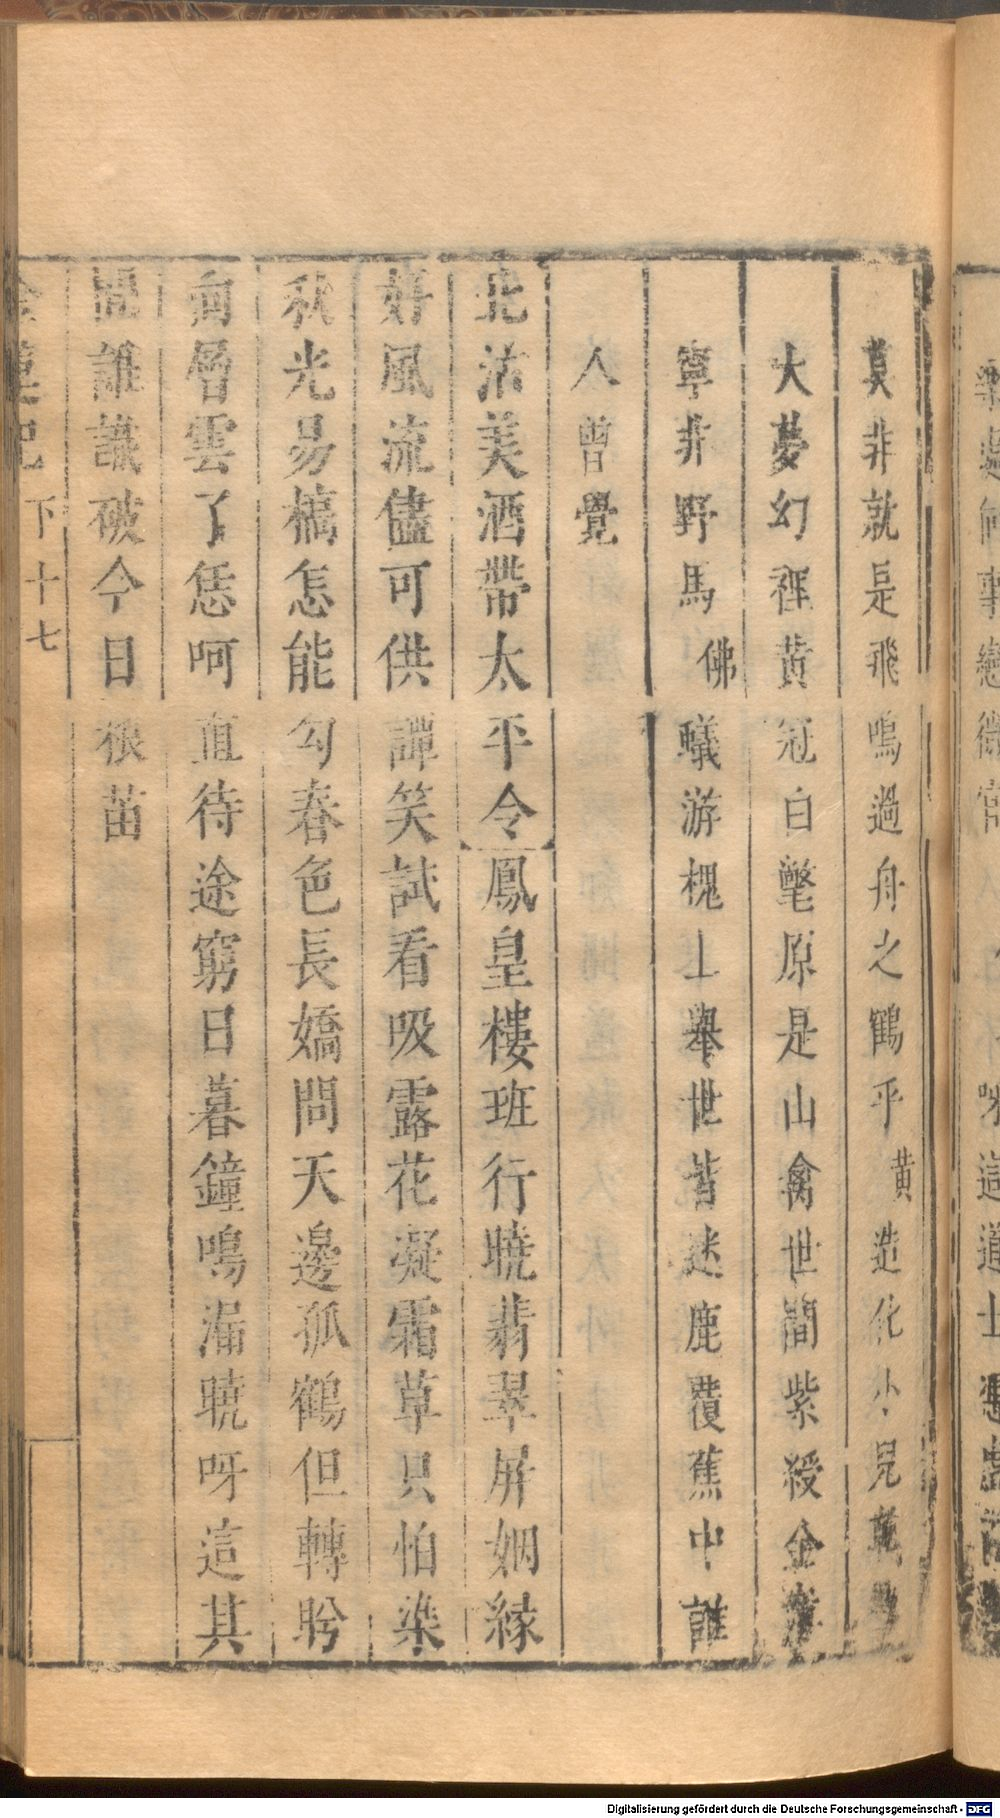 莫非就是飛鳴過舟之鶴乎黃造化小兒
大夢幻裡黃冠白氅原是山禽世間紫綬金
寧非野馬佛蟻游槐上舉世皆迷鹿覆蕉中誰
人曾覺
北沽美酒帶太平令鳳皇樓班行曉翡翠屏姻緣
好風流儘可供譚笑試看吸露花凝霜草只怕染
秋光易槁怎能勾春色長嬌問天邊孤鶴但轉盻
向層雲了恁呵直待途窮日暮鐘鳴漏曉呀這其
間誰識破今日根苗
下十七
Digitalisierung gefördert durch die Deutsche Forschungsgemeinschaft - DFG